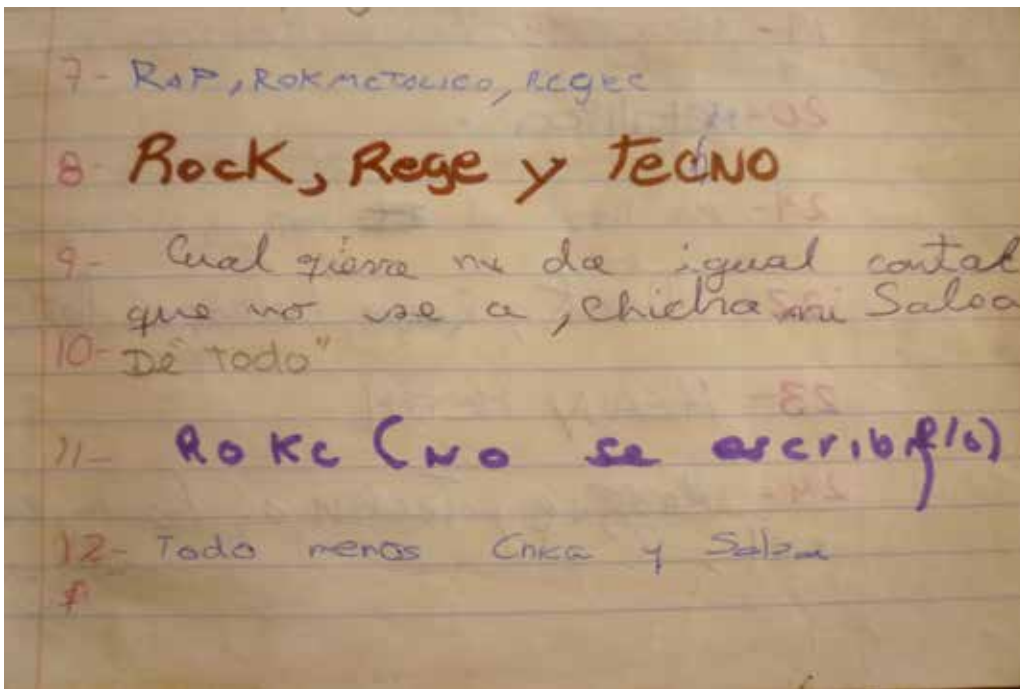 7- RAP, ROKMETALICO, REGEE
8- Rock, Rege y TecNO
9- Cual qiera me da igual contal
que no se a, chicha ni Salsa
10- De Todo"
11- ROKE (No se escribirlo)
12- Todo menos Chica y Salsa